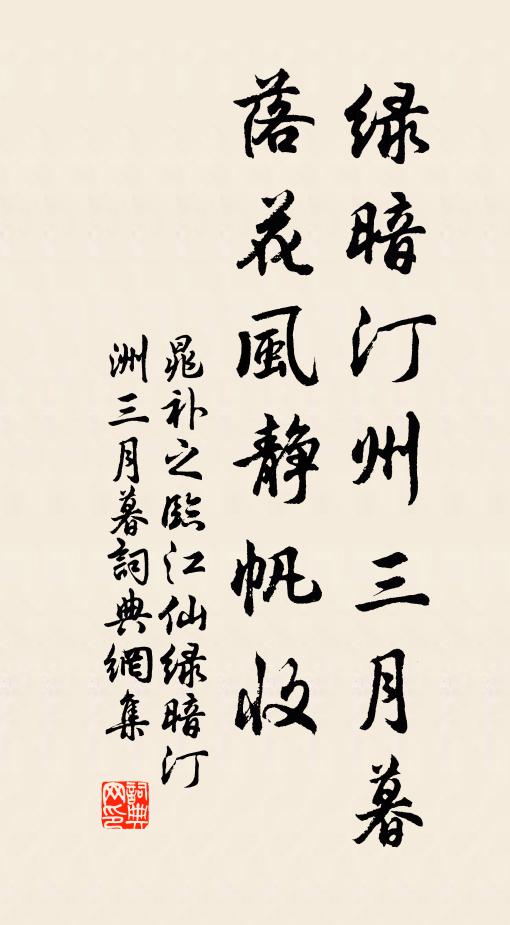 绿暗汀州三月暮
落花風静帆收
晁补之臨江仙绿暗汀
洲三月暮詞典網集
詞典
网印